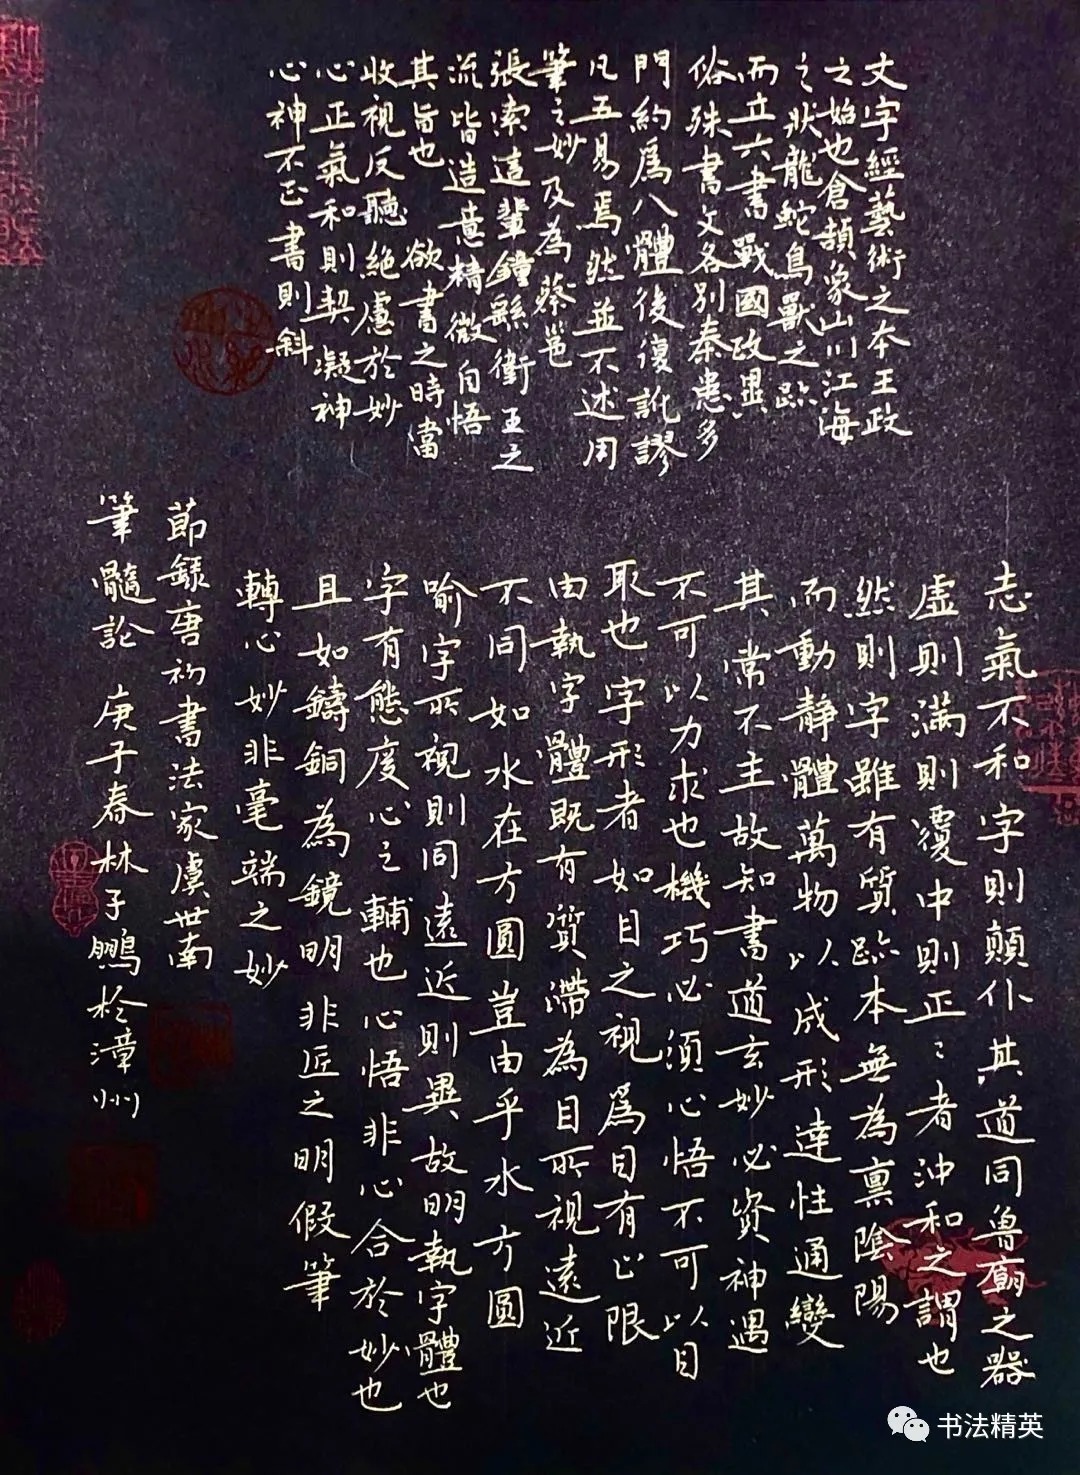 文字經藝術之本王政
之始也倉頡象山川江海
之狀龍蛇鳥獸之跡
而立六書戰國政異
俗殊書文各別秦患多
門約為八體後復訛謬
凡五易焉然並不述用
筆之妙及為蔡邕
張索這輩鐘繇衛王之
流皆造意精微自悟
其旨也 欲書之時當
收視反聽絕慮於妙
心正氣和則契凝神
心神不正書則斜
志氣不和字則顛仆其道同魯廟之器
虛則滿則覆中則正〻者沖和之謂也
然則字雖有質跡本無為稟陰陽
而動靜體萬物以成形達性通變
其常不主故知書道玄妙必資神遇
不可以力求也機巧必須心悟不可以目
取也字形者如目之視為目有止限
由執字體既有質滯為目所視遠近
不同如水在方圓豈由乎水方圓
喻字所視則同遠近則異故明執字體也
字有態度心之輔也心悟非心合於妙也
且如鑄銅為鏡明非匠之明假筆
轉心妙非毫端之妙
節錄唐初書法家虞世南
筆髓論 庚子春林子鵬於漳州
书法精英